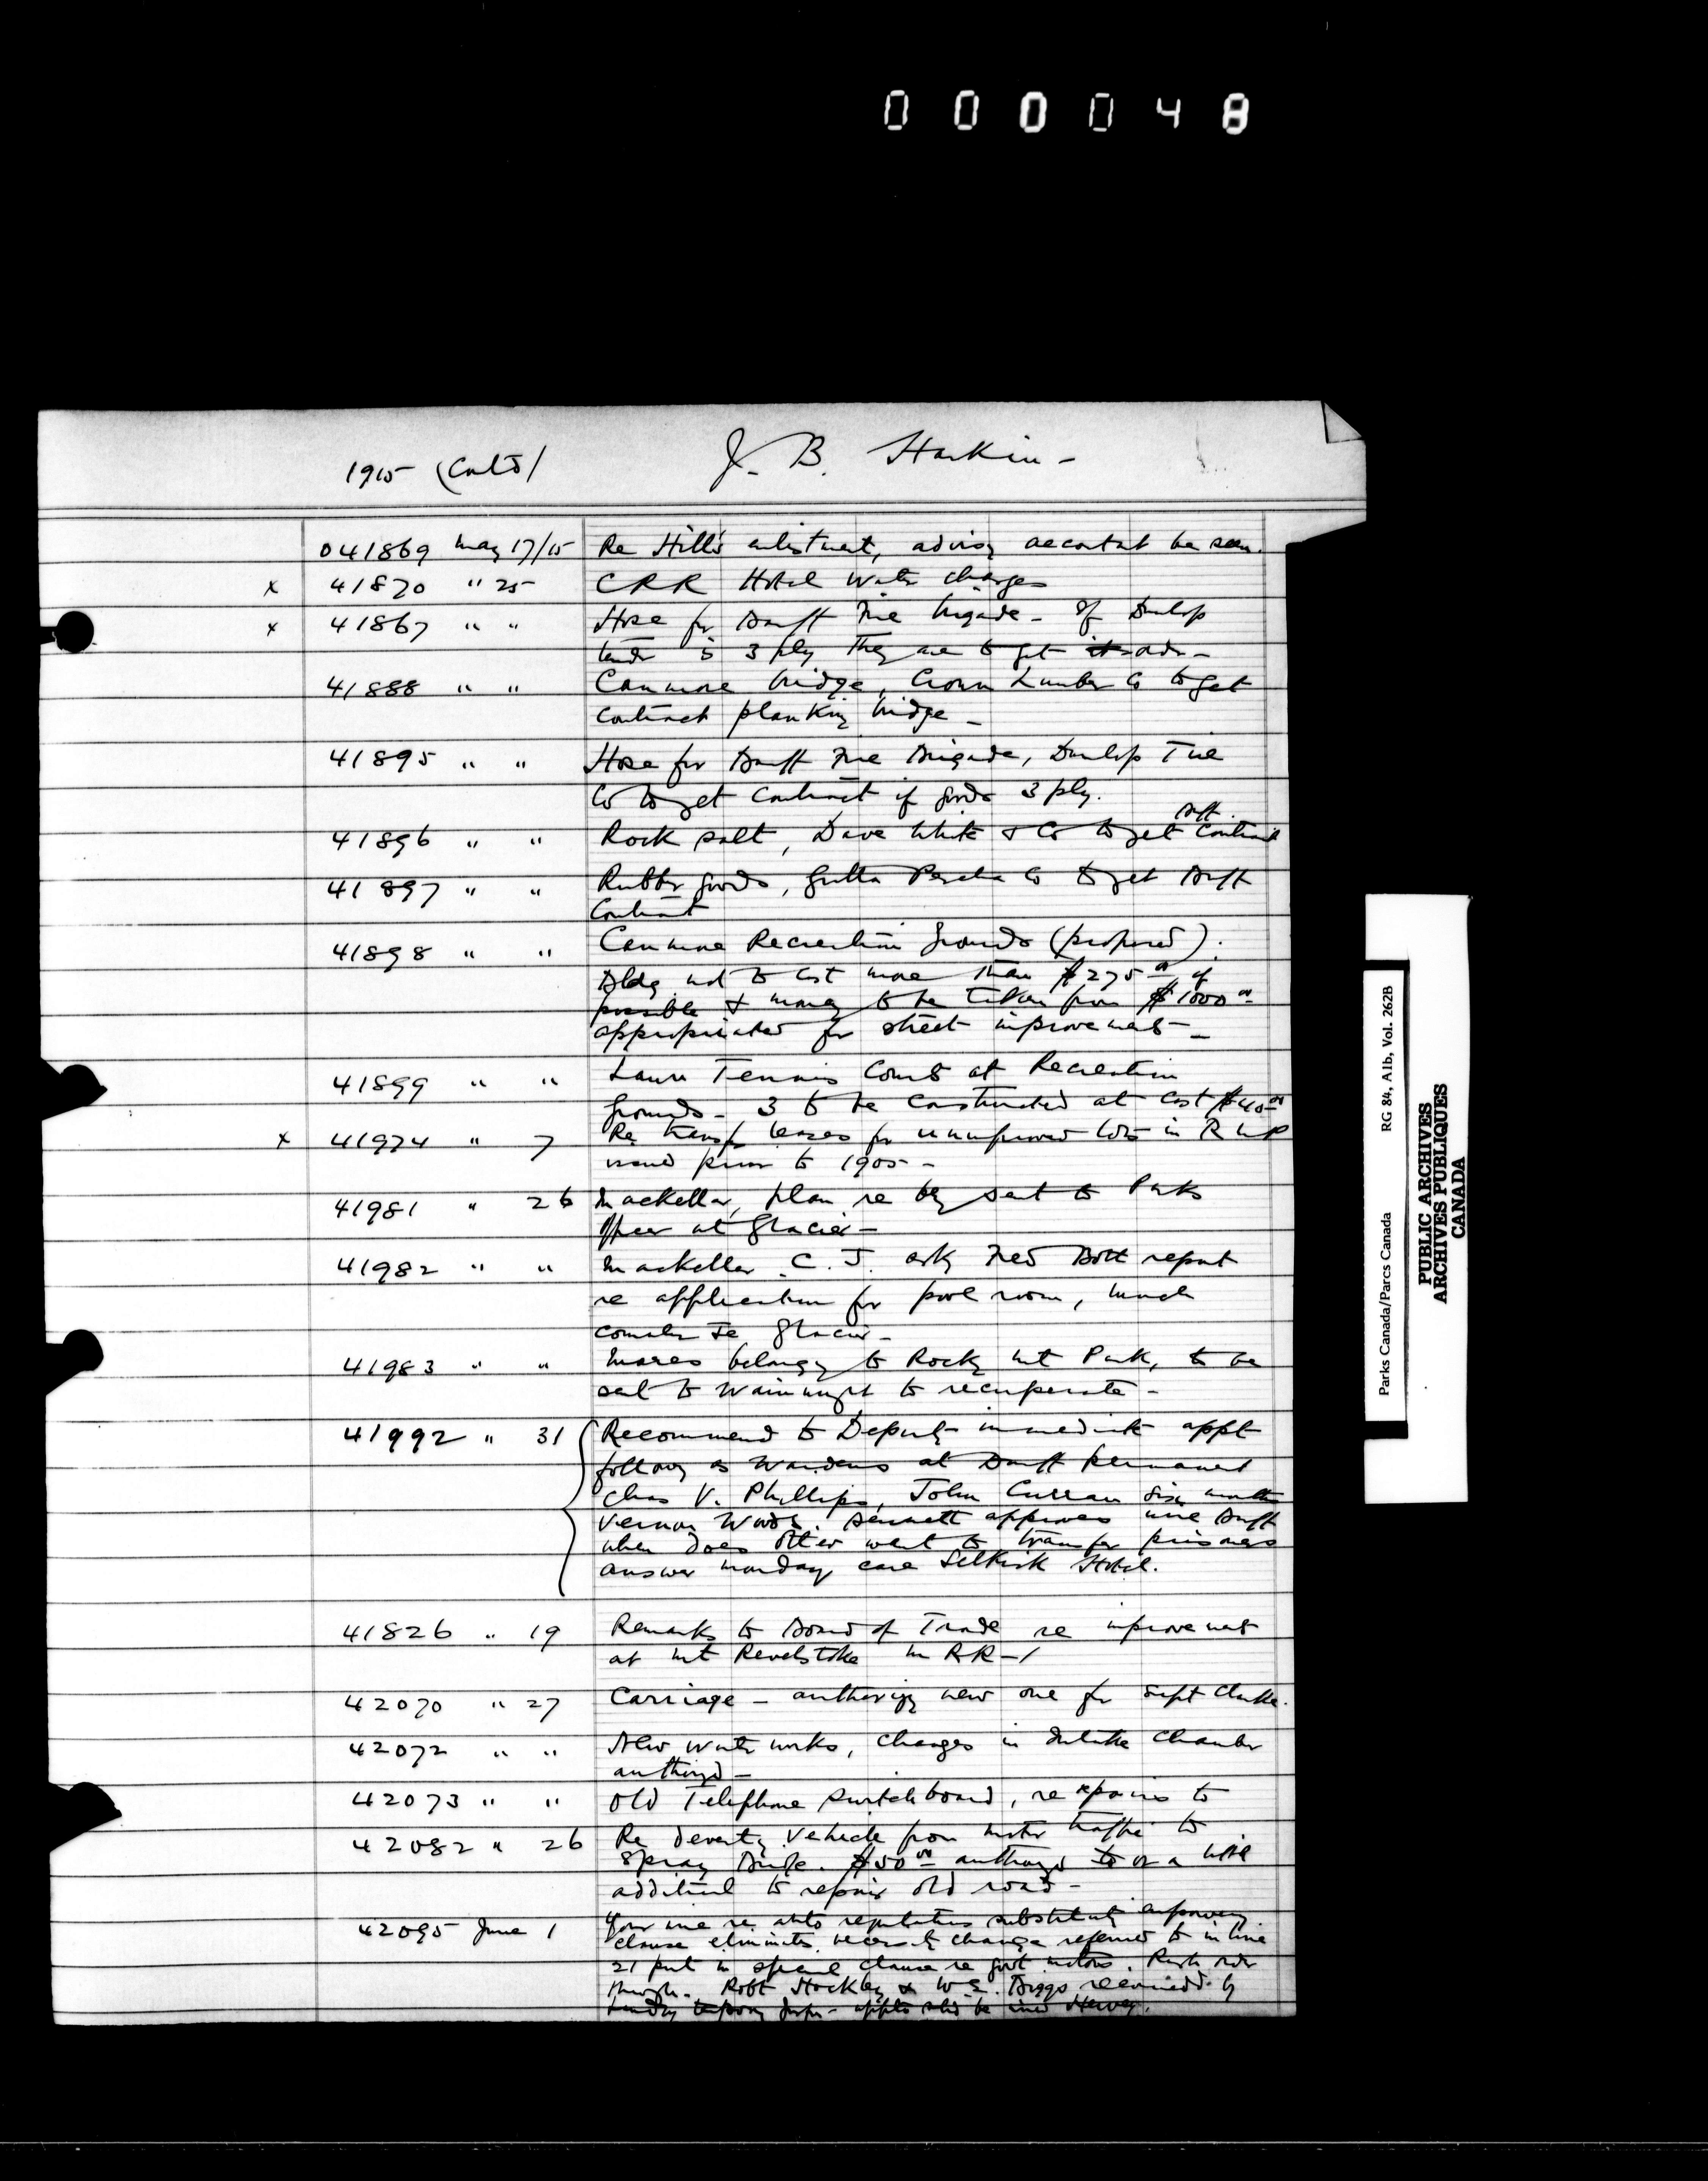 0 0 0 0 4 8
1915 (Contd)
J. B. Harkin -
041869 May 17/15 Re Hill's enlistment, advising be seen.
x 41870 " 25 CRR Hotel Water charges
x 41867 " " Hose for Banff Fire brigade - If Dunlop
tender is 3 ply they are to get order -
41888 " " Canmore bridge, Crown Lumber Co to get
contract planking bridge -
41895 " " Hose for Banff Fire Brigade, Dunlop Tire
Co to get contract if goods 3 ply.
41896 " " Rock salt, Dave White & Co to get Contract
41897 " " Rubber goods, Gutta Percha Co to get Banff
Contract
41898 " " Canmore Recreation Grounds (proposed).
Bldg not to cost more than $275 00 if
possible & money to be taken from $1000 00
appropriated for street improvements -
41899 " " Lawn Tennis Courts at Recreation
Grounds - 3 to be constructed at cost
x 41974 " 7 Re transfer leases for unimproved lots in R M P
issued prior to 1905 -
41981 " 26 Mackellar, plan re bg sent to Parks
Officer at Glacier -
41982 " " Mackellar C. J. ask Fred Bott report
re application for pool room, lunch
counter Glacier -
41983 " " Mares belonging to Rocky Mt Park, to be
sent to Wainwright to recuperate -
41992 " 31 Recommend to Deputy immediate appt
following as Wardens at Banff permanent
Chas V. Phillips, John Curran six months
Vernon Wood. Bennett approves wire Banff
when does Otter want to transfer prisoners
answer Monday care Selkirk Hotel.
41826 " 19 Remarks to Board of Trade re improvements
at Mt Revelstoke in RR-1
42070 " 27 Carriage - authorizing new one for Supt Clarke.
42072 " " New water works, changes in Intake Chamber
authorized -
42073 " " Old Telephone switchboard, re repairs to
42082 " 26 Re diverting vehicle from motor traffic to
Spray Bridge. $50 00 authorized
additional to repair old road -
42095 June 1 Your wire re auto regulations substituting empowering
clause eliminates necessity change referred to in line
21 put in special clause re govt motors. Rush order
through. Robt Stockley & W. E. Briggs recommended by
be Hervey.
Parks Canada/Parcs Canada RG 84, A1b, Vol. 262B
PUBLIC ARCHIVES
ARCHIVES PUBLIQUES
CANADA